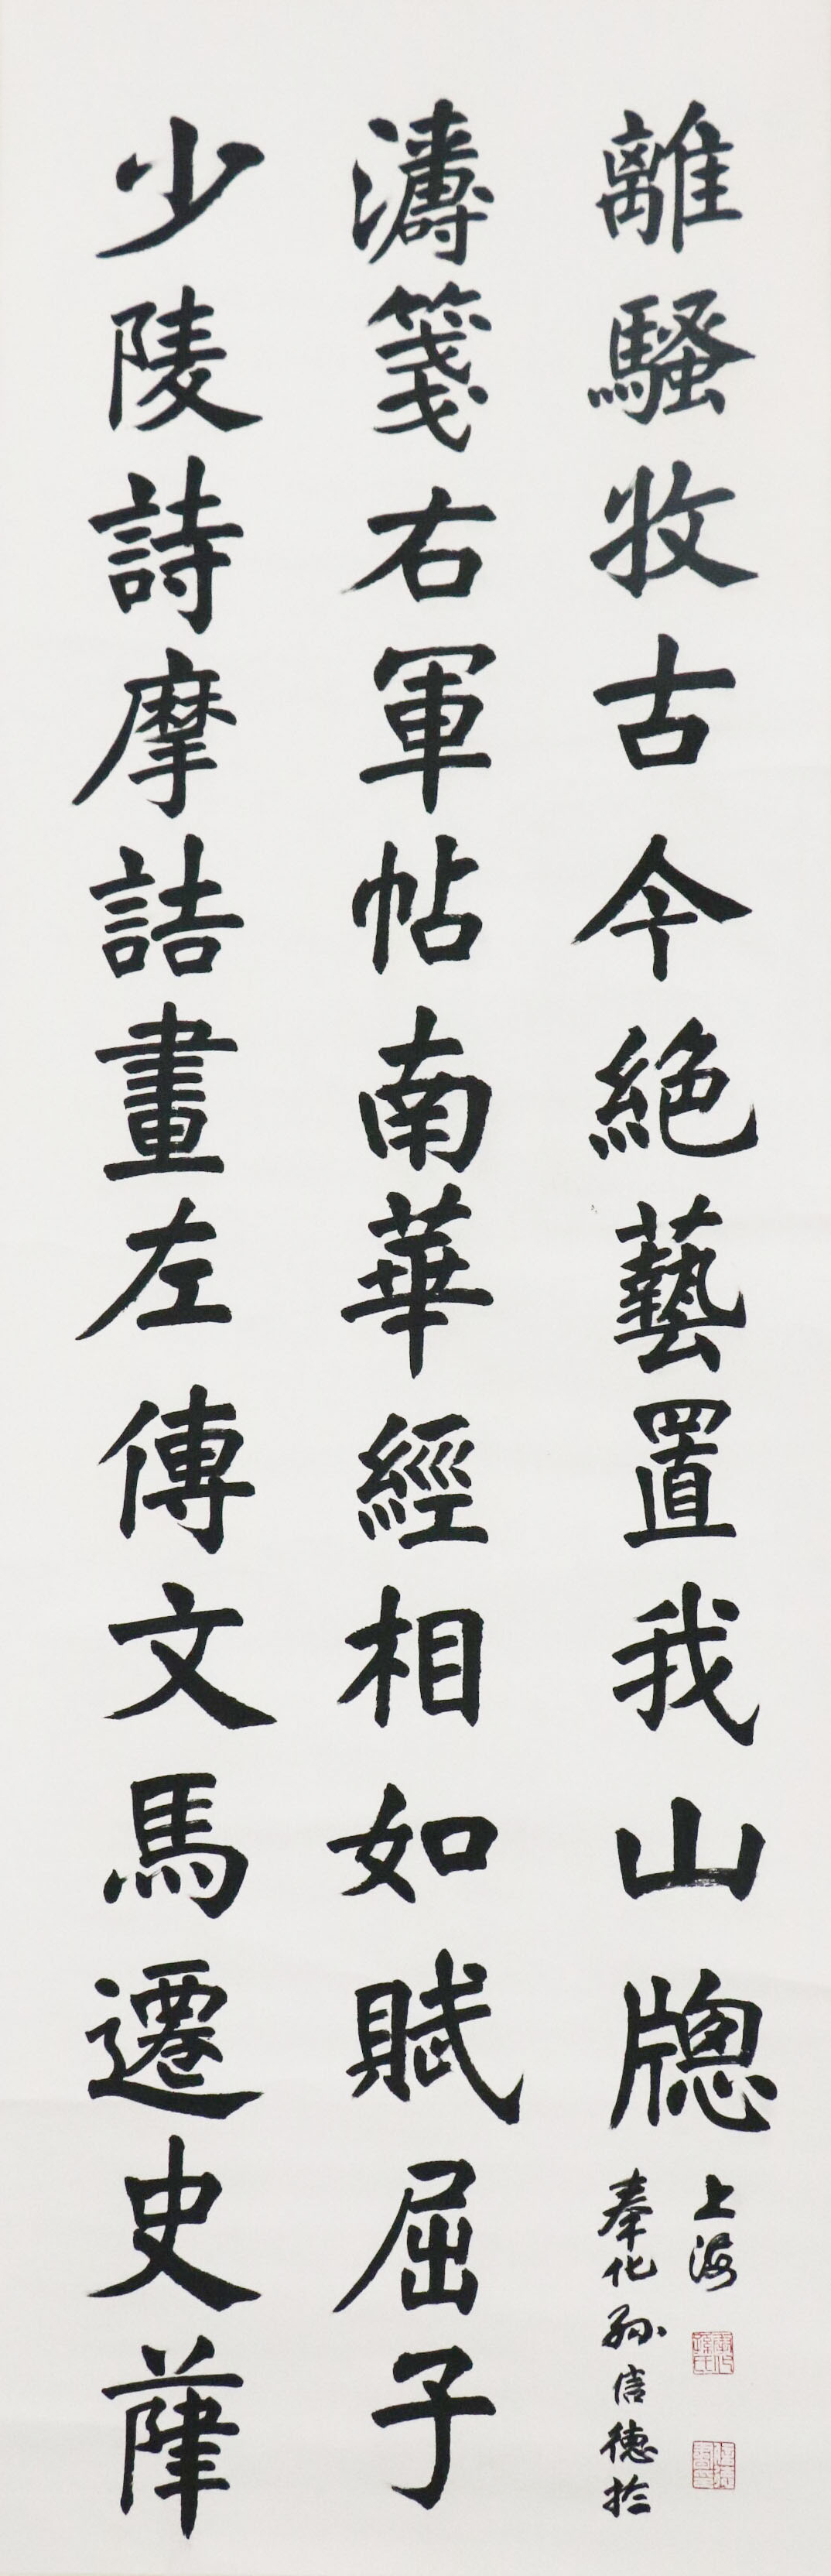 少陵詩摩詰畫左傳文馬遷史薛
濤箋右軍帖南華經相如賦屈子
離騷收古今絶藝置我山牕
奉化孫信德於
上海